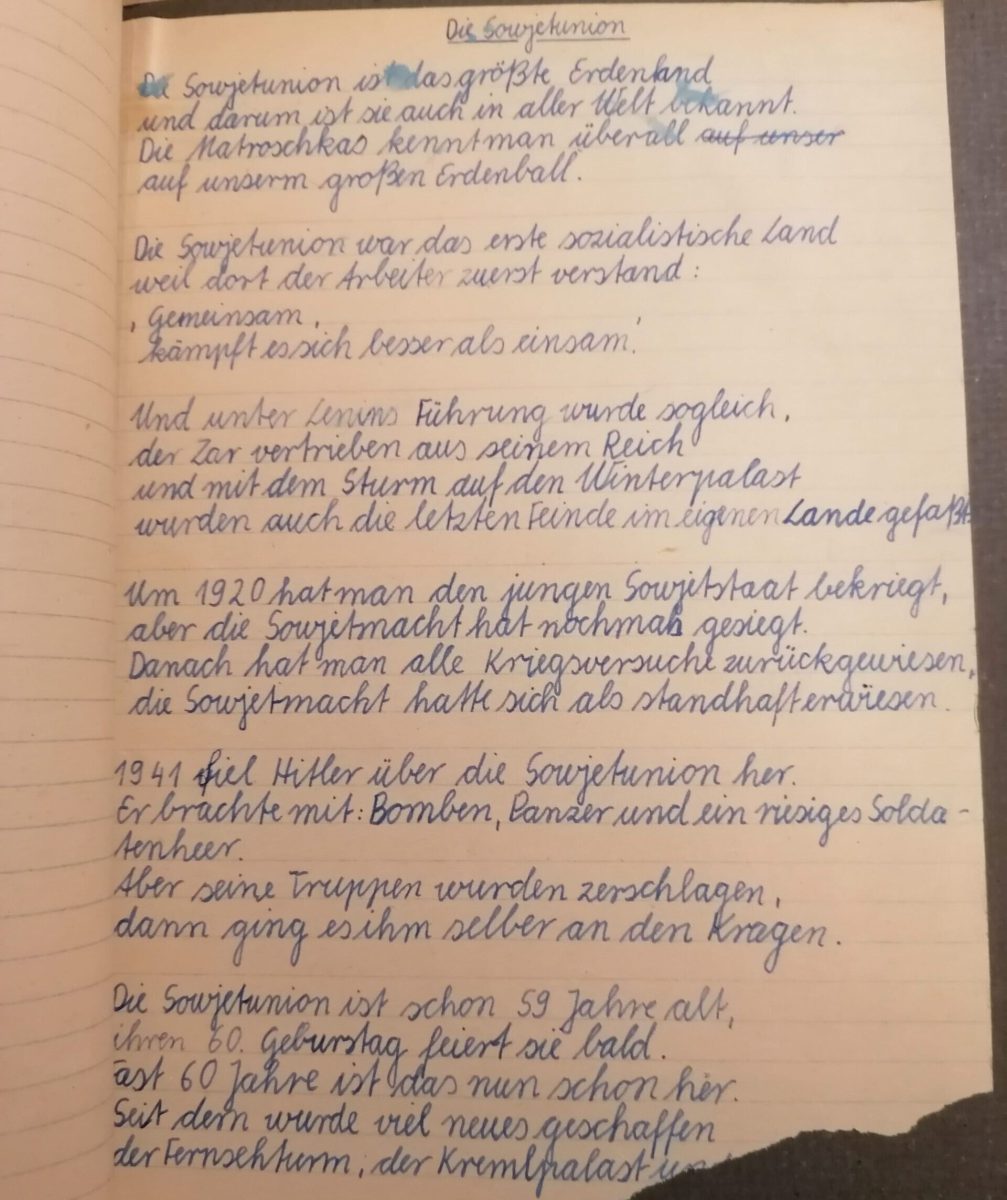 Die Sowjetunion
Die Sowjetunion ist das größte Erdenland
und darum ist sie auch in aller Welt bekannt.
Die Matroschkas kennt man überall auf unser
auf unserm großen Erdenball.
Die Sowjetunion war das erste sozialistische Land
weil dort der Arbeiter zuerst verstand:
, Gemeinsam,
kämpft es sich besser als einsam.'
Und unter Lenins Führung wurde sogleich,
der Zar vertrieben aus seinem Reich
und mit dem Sturm auf den Winterpalast
wurden auch die letzten Feinde im eigenen Lande gefaßt.
Um 1920 hat man den jungen Sowjetstaat bekriegt,
aber die Sowjetmacht hat nochmals gesiegt.
Danach hat man alle Kriegsversuche zurückgewiesen,
die Sowjetmacht hatte sich als standhaft erwiesen.
1941 fiel Hitler über die Sowjetunion her.
Er brachte mit: Bomben, Panzer und ein riesiges Solda-
tenheer.
Aber seine Truppen wurden zerschlagen,
dann ging es ihm selber an den Kragen.
Die Sowjetunion ist schon 59 Jahre alt,
ihren 60. Geburstag feiert sie bald.
Fast 60 Jahre ist das nun schon her.
Seit dem wurde viel neues geschaffen
der Fernsehturm, der Kremlpalast